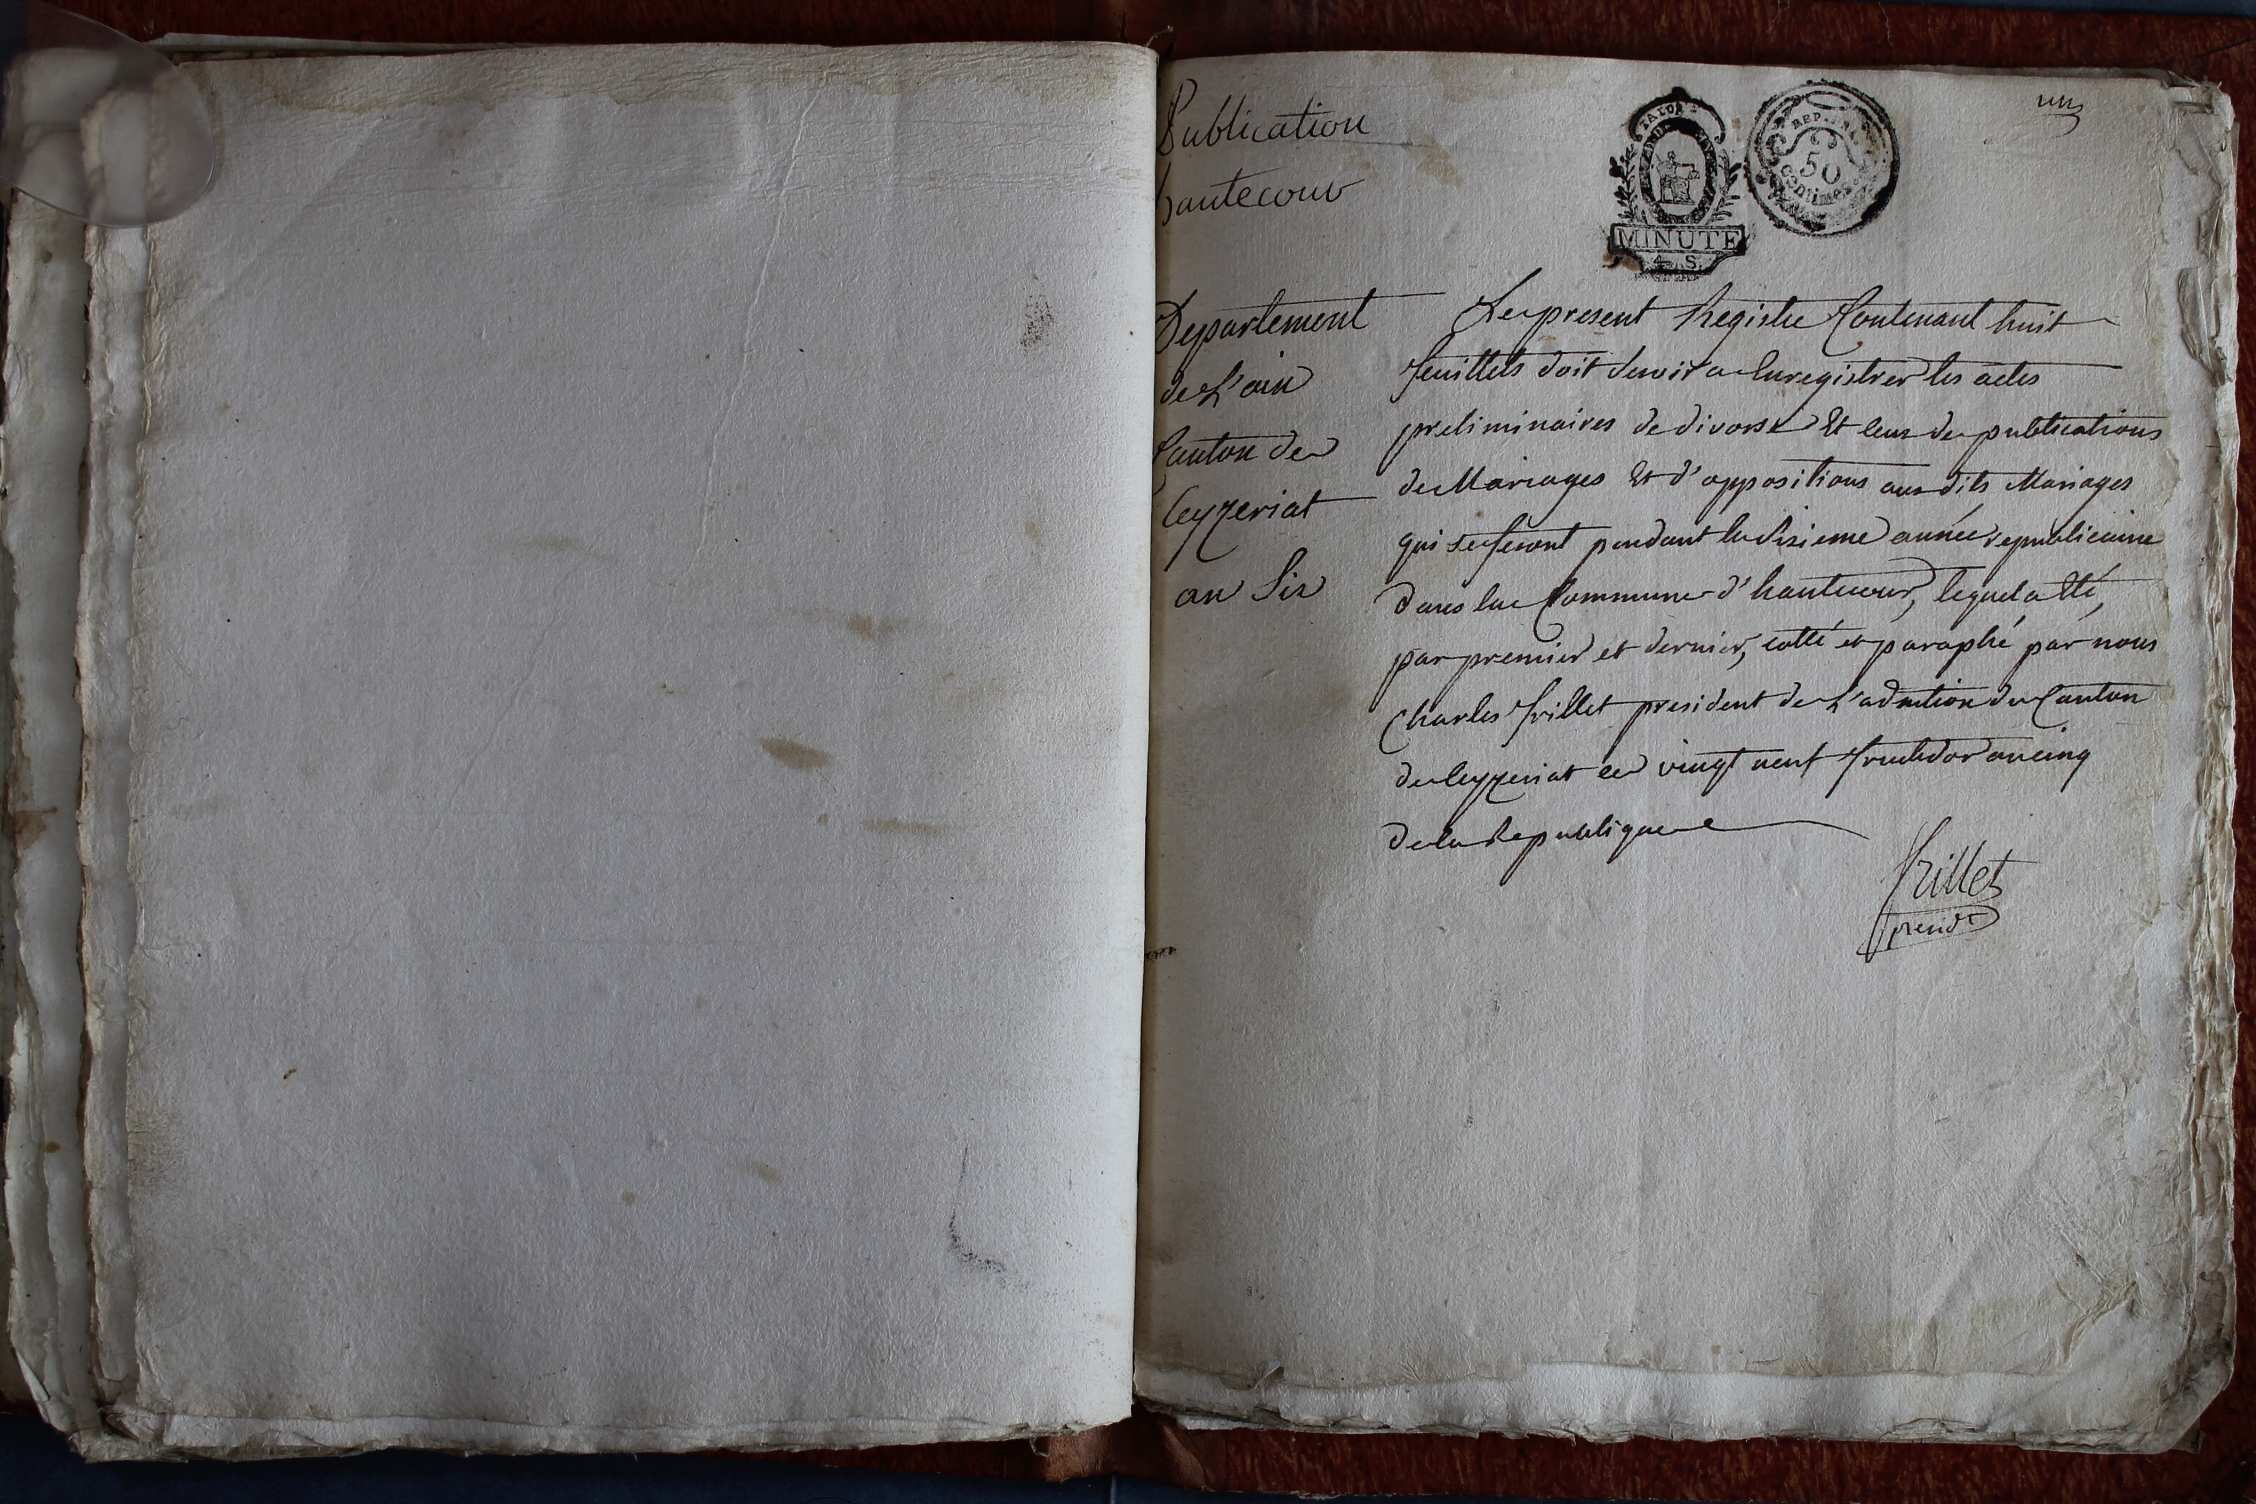 un
Publication
hautecour
MINUTE
4. S.
REP. FRA.
50
centimes
Departement
de L'ain
Canton de
Ceyzeriat
an Six
Le present Registre Contenant huit
feuillets doit servir a Enregistrer les actes
preliminaires de divorse Et ceux de publications
de Mariages Et d'oppositions aux dits Mariages
qui se feront pendant la sixieme année republicaine
dans la Commune d'hautecour, lequel a Eté,
par premier et dernier, cotté et paraphé par nous
Charles frillet president de L'admtion du Canton
de Ceyzeriat le vingt neuf fructidor an cinq
de la Republique
frillet
presidt